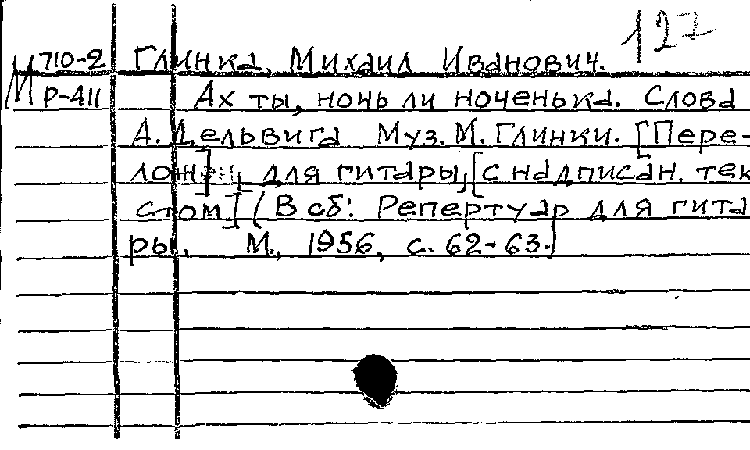 127
М 710-2 Глинка, Михаил Иванович.
Р-411 Ах ты, ночь ли ноченька. Слова
А. Дельвига Муз. М. Глинки. [Пере-
ложен] для гитары, [с надписан. тек
стом] (В сб: Репертуар для гита
ры. М., 1956, с. 62-63.)